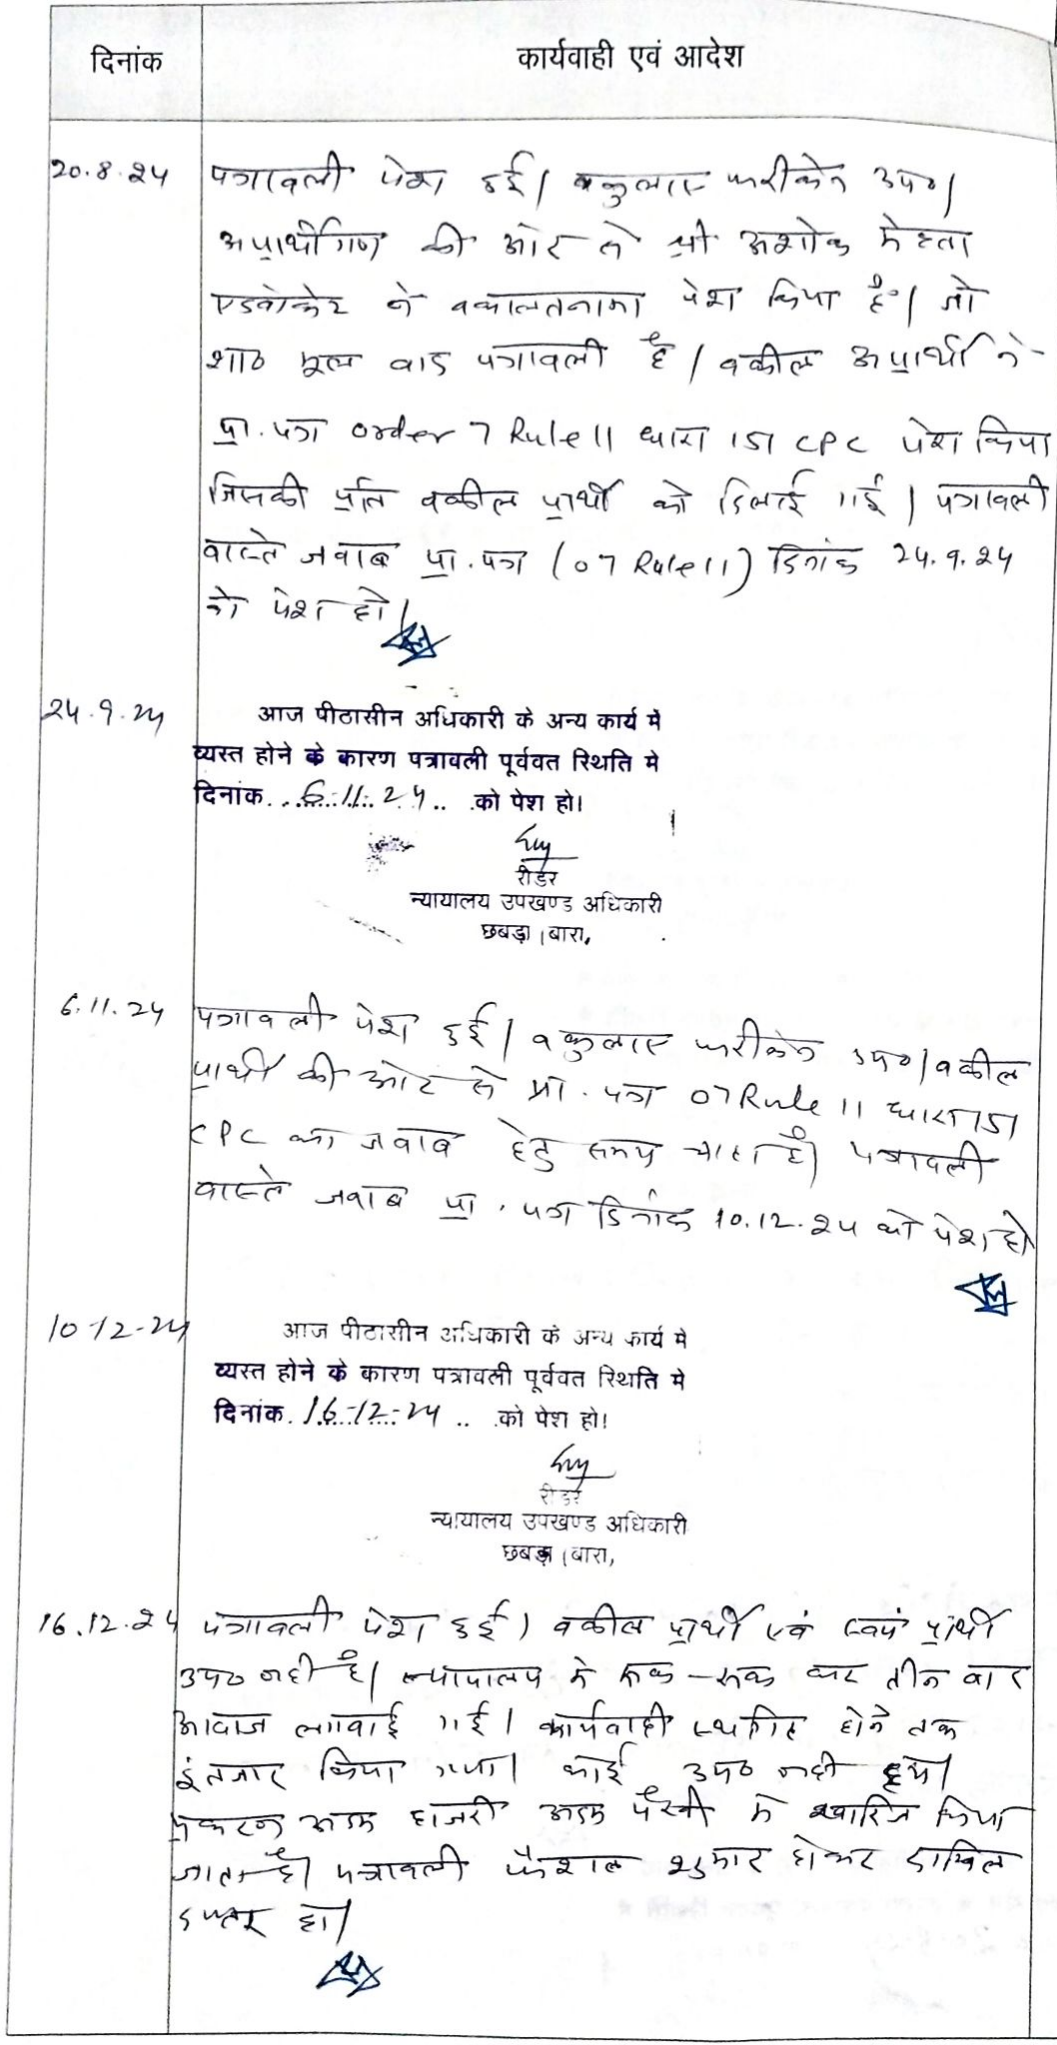 दिनांक
कार्यवाही एवं आदेश
20.8.24
पत्रावली पेश हुई। वकुलाए फरीकेन उप०।
अप्रार्थीगण की ओर से श्री अशोक मेहता
एडवोकेट ने वकालतनामा पेश किया है। जो
शा० मूल वाद पत्रावली है। वकील अप्रार्थी ने
प्रा. पत्र order 7 Rule 11 धारा 151 CPC पेश किया
जिसकी प्रति वकील प्रार्थी को दिलाई गई। पत्रावली
वास्ते जवाब प्रा. पत्र (07 Rule 11) दिनांक 24.9.24
को पेश हो।
24.9.24
आज पीठासीन अधिकारी के अन्य कार्य मे
व्यस्त होने के कारण पत्रावली पूर्ववत स्थिति मे
दिनांक. 6-11-24 .. .को पेश हो।
रीडर
न्यायालय उपखण्ड अधिकारी
छबड़ा।बारा,
6.11.24
पत्रावली पेश हुई। वकुलाए फरीकेन उप०। वकील
प्रार्थी की ओर से प्रा. पत्र 07 Rule 11 धारा 151
CPC का जवाब हेतु समय चाहा है। पत्रावली
वास्ते जवाब प्रा. पत्र दिनांक 10.12.24 को पेश हो
10-12-24
आज पीठासीन अधिकारी के अन्य कार्य मे
व्यस्त होने के कारण पत्रावली पूर्ववत स्थिति मे
दिनांक. 16-12-24 .. .को पेश हो।
रीडर
न्यायालय उपखण्ड अधिकारी
छबड़ा।बारा,
16.12.24
पत्रावली पेश हुई। वकील प्रार्थी एवं स्वयं प्रार्थी
उप० नही है। न्यायालय मे रूक-रूक कर तीन बार
आवाज लगवाई गई। कार्यवाही स्थगित होने तक
इंतजार किया गया। कोई उप० नही हुये।
प्रकरण अदम हाजरी अदम पैरवी मे खारिज किया
जाता है। पत्रावली फैशल शुमार होकर दाखिल
दफ्तर हो।